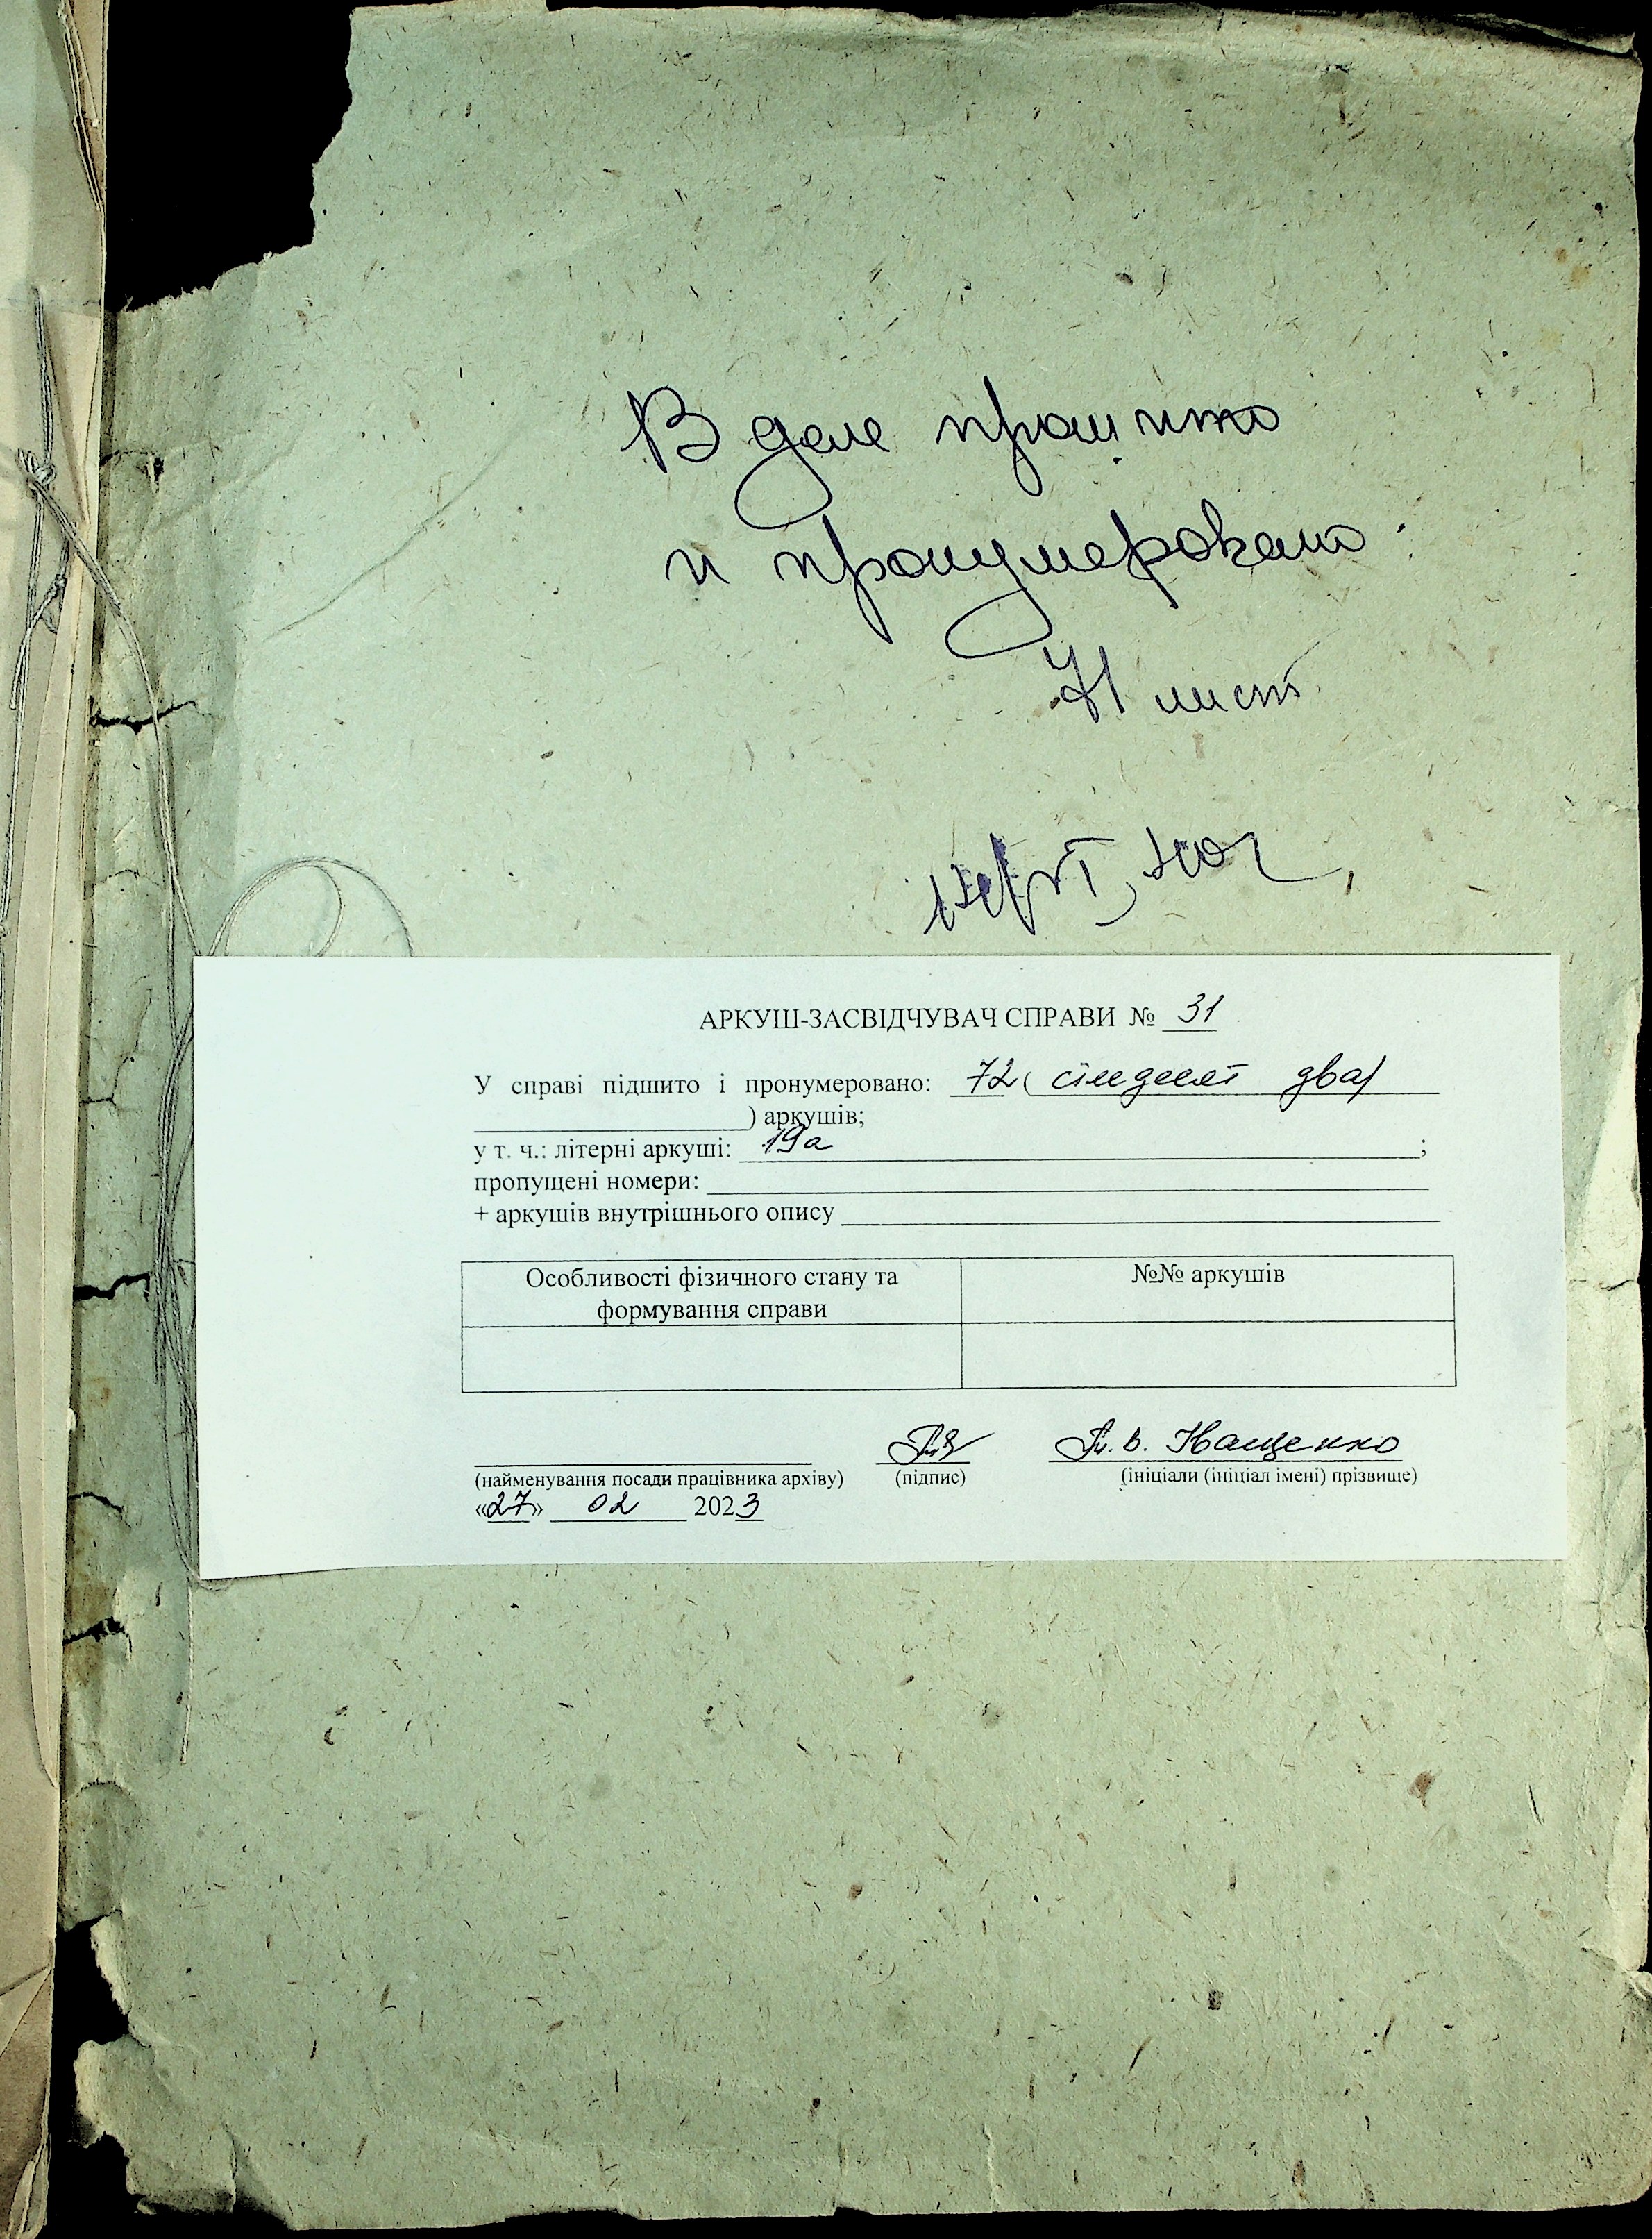 В деле прошито
и пронумеровано:
71 лист
АРКУШ-ЗАСВІДЧУВАЧ СПРАВИ № 31
У справі підшито і пронумеровано: 72 ( сімдесят два)
) аркушів;
у т. ч.: літерні аркуші: 19а ;
пропущені номери:
+ аркушів внутрішнього опису
Особливості фізичного стану та
формування справи
№№ аркушів
В. Іващенко
(найменування посади працівника архіву) (підпис) (ініціали (ініціал імені) прізвище)
«27» 02 2023